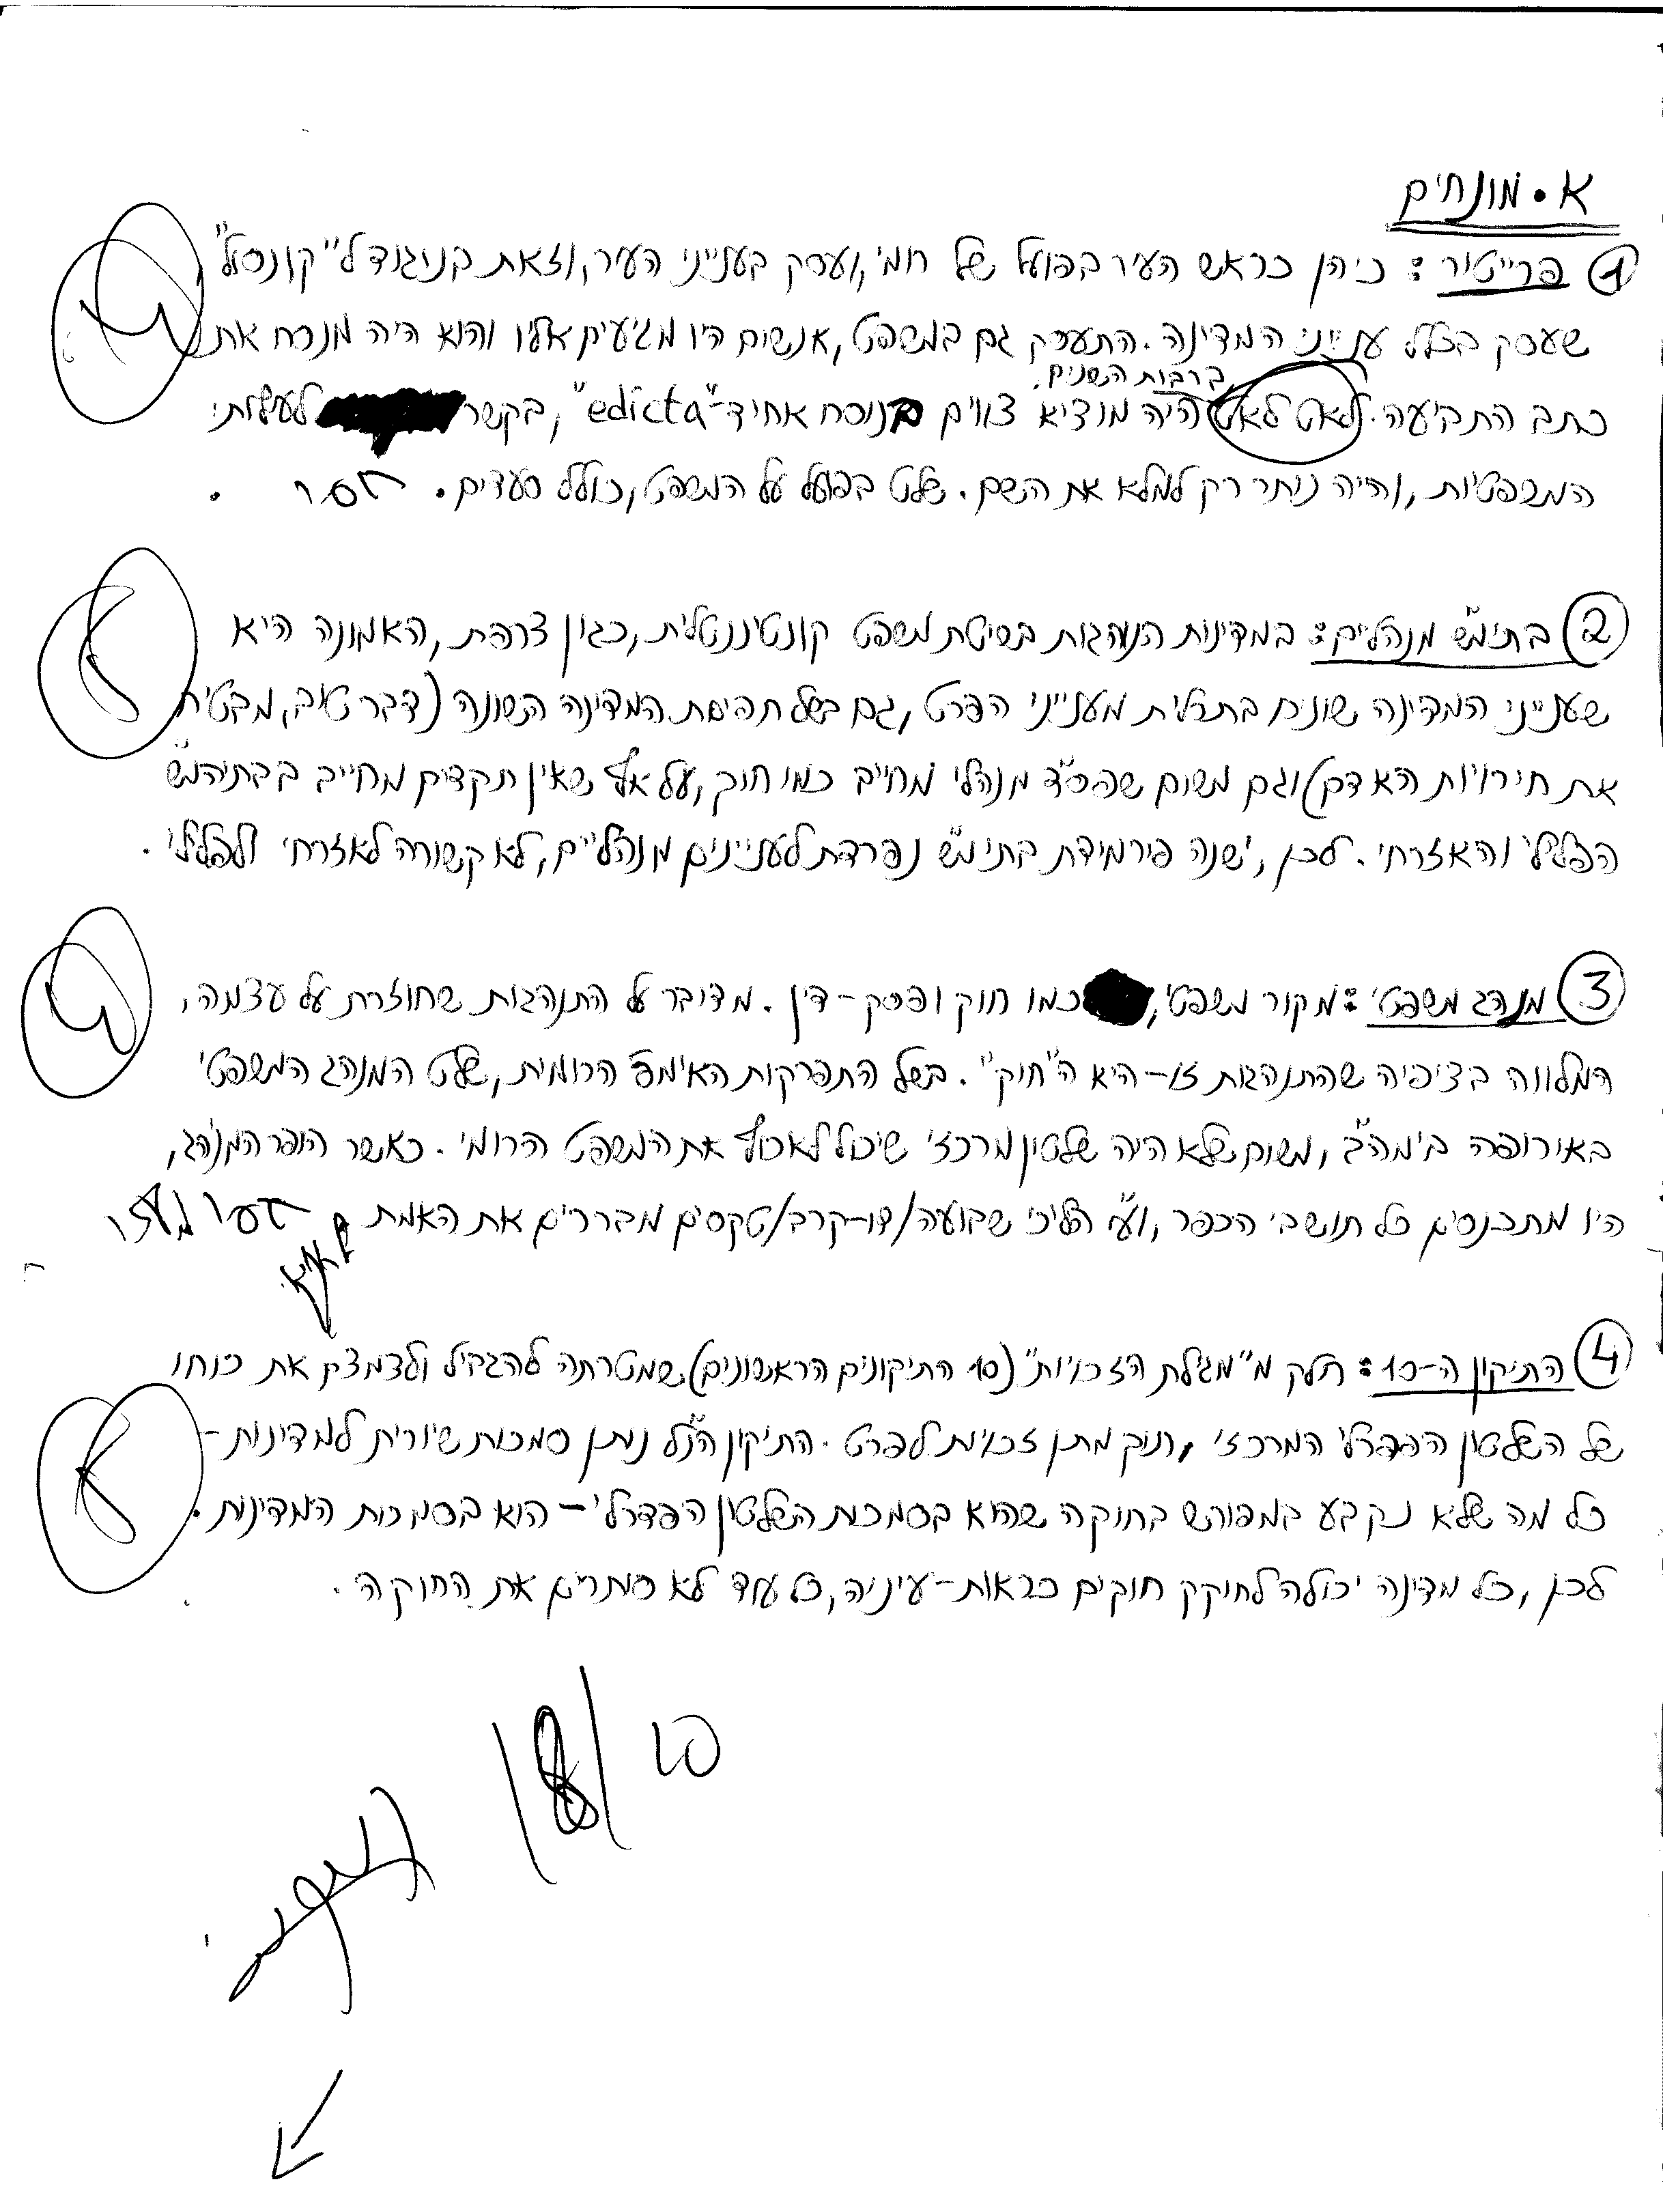 א. מונחים
① פרייטור: כיהן כראש העיר בפועל של רומי, ועסק בענייני העיר, וזאת בניגוד ל"קונסול"
שעסק בכלל ענייני המדינה. התערב גם במשפט, אנשים היו מגיעים אליו והוא היה מנסח את
ברבות השנים,
כתב התביעה. לאט לאט היה מוציא צווים בנוסח אחיד-"edicta", בקשר לעילות
המשפטיות, והיה נותר רק למלא את השם. שלט בפועל על המשפט, כולל סעדים. חסר.
② בתימ"ש מנהליים: במדינות הנוהגות בשיטת משפט קונטיננטלית, כגון צרפת, האמונה היא
שענייני המדינה שונים בתכלית מענייני הפרט, גם בשל תפיסת המדינה השונה (דבר טוב, מבטיח
את חירויות האדם) וגם משום שפס"ד מנהלי מחייב כמו חוק, על אף שאין תקדים מחייב בבתיהמ"ש
הפלילי והאזרחי. לכן, ישנה פירמידת בתימ"ש נפרדת לעניינים מנהליים, לא קשורה לאזרחי ולפלילי.
③ מנהג משפטי: מקור משפטי, כמו חוק ופסק-דין. מדובר על התנהגות שחוזרת על עצמה,
המלווה בציפיה שהתנהגות זו-היא ה"חוק". בשל התפרקות האימפ' הרומית, שלט המנהג המשפטי
באירופה בימה"ב, משום שלא היה שלטון מרכזי שיכול לאכוף את המשפט הרומי. כאשר הופר המנהג,
היו מתכנסים כל תושבי הכפר, וע"י הליכי שבועה/דו-קרב/טקסים מבררים את האמת חסר
④ התיקון ה-10: חלק מ"מגילת הזכויות" (10 התיקונים הראשונים) שמטרתה להגביל ולצמצם את כוחו
של השלטון הפדרלי המרכזי, תוך מתן זכויות לפרט. התיקון הנ"ל נותן סמכות שיורית למדינות-
כל מה שלא נקבע במפורש בחוקה שהוא בסמכות השלטון הפדרלי - הוא בסמכות המדינות.
לכן, כל מדינה יכולה לחוקק חוקים כראות-עיניה, כל עוד לא סותרים את החוקה.